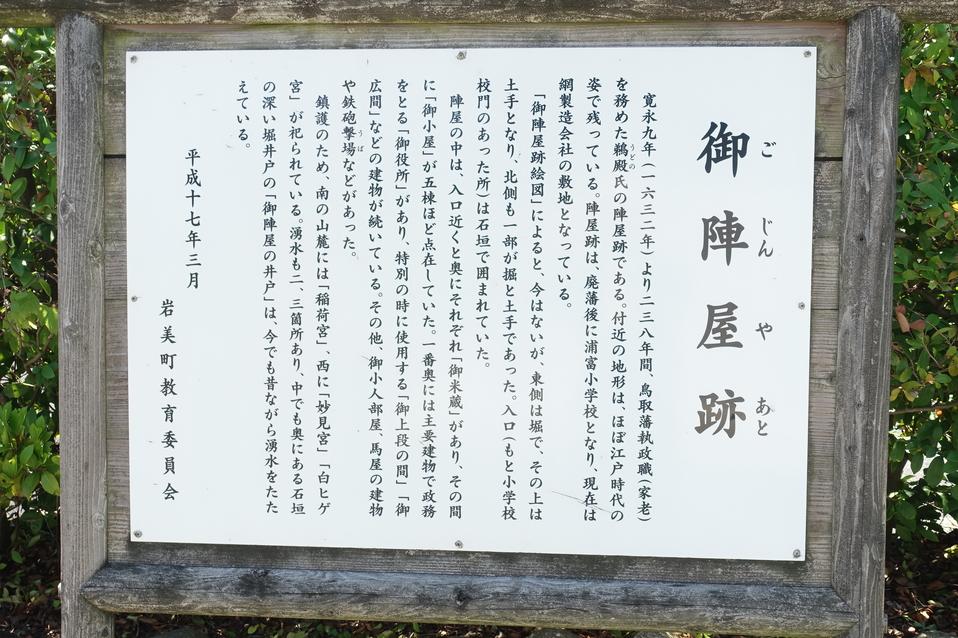 御陣屋跡
ごじんやあと
寛永九年(一六三二年)より二三八年間、鳥取藩執政職(家老)
を務めた鵜殿氏の陣屋跡である。付近の地形は、ほぼ江戸時代の
うどの
姿で残っている。陣屋跡は、廃藩後に浦富小学校となり、現在は
網製造会社の敷地となっている。
「御陣屋跡絵図」によると、今はないが、東側は堀で、その上は
土手となり、北側も一部が掘と土手であった。入口(もと小学校
校門のあった所は石垣で囲まれていた。
陣屋の中は、入口近くと奥にそれぞれ「御米蔵」があり、その間
に「御小屋」が五棟ほど点在していた。一番奥には主要建物で政務
をとる「御役所」があり、特別の時に使用する「御上段の間」「御
広間」などの建物が続いている。その他、御小人部屋、馬屋の建物
や鉄砲撃場などがあった。
うば
鎮護のため、南の山麓には「稲荷宮」、西に「妙見宮」「白ヒゲ
宮」が祀られている。湧水も二、三箇所あり、中でも奥にある石垣
の深い堀井戸の「御陣屋の井戸」は、今でも昔ながら湧水をたた
えている。
平成十七年三月
岩美町教育委員会